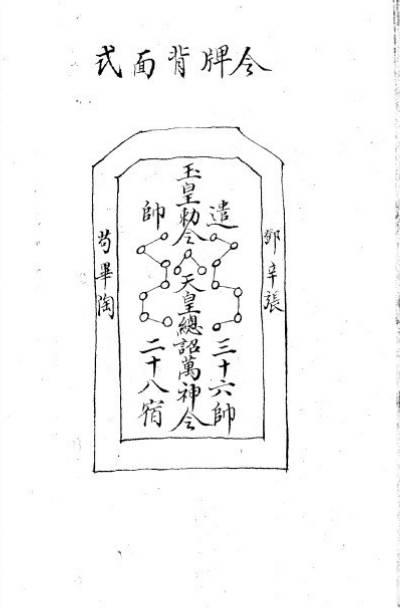 令牌背面式
鄧辛張
遣
三十六帥
玉皇勅令
天皇總詔萬神令
帥
二十八宿
苟畢陶